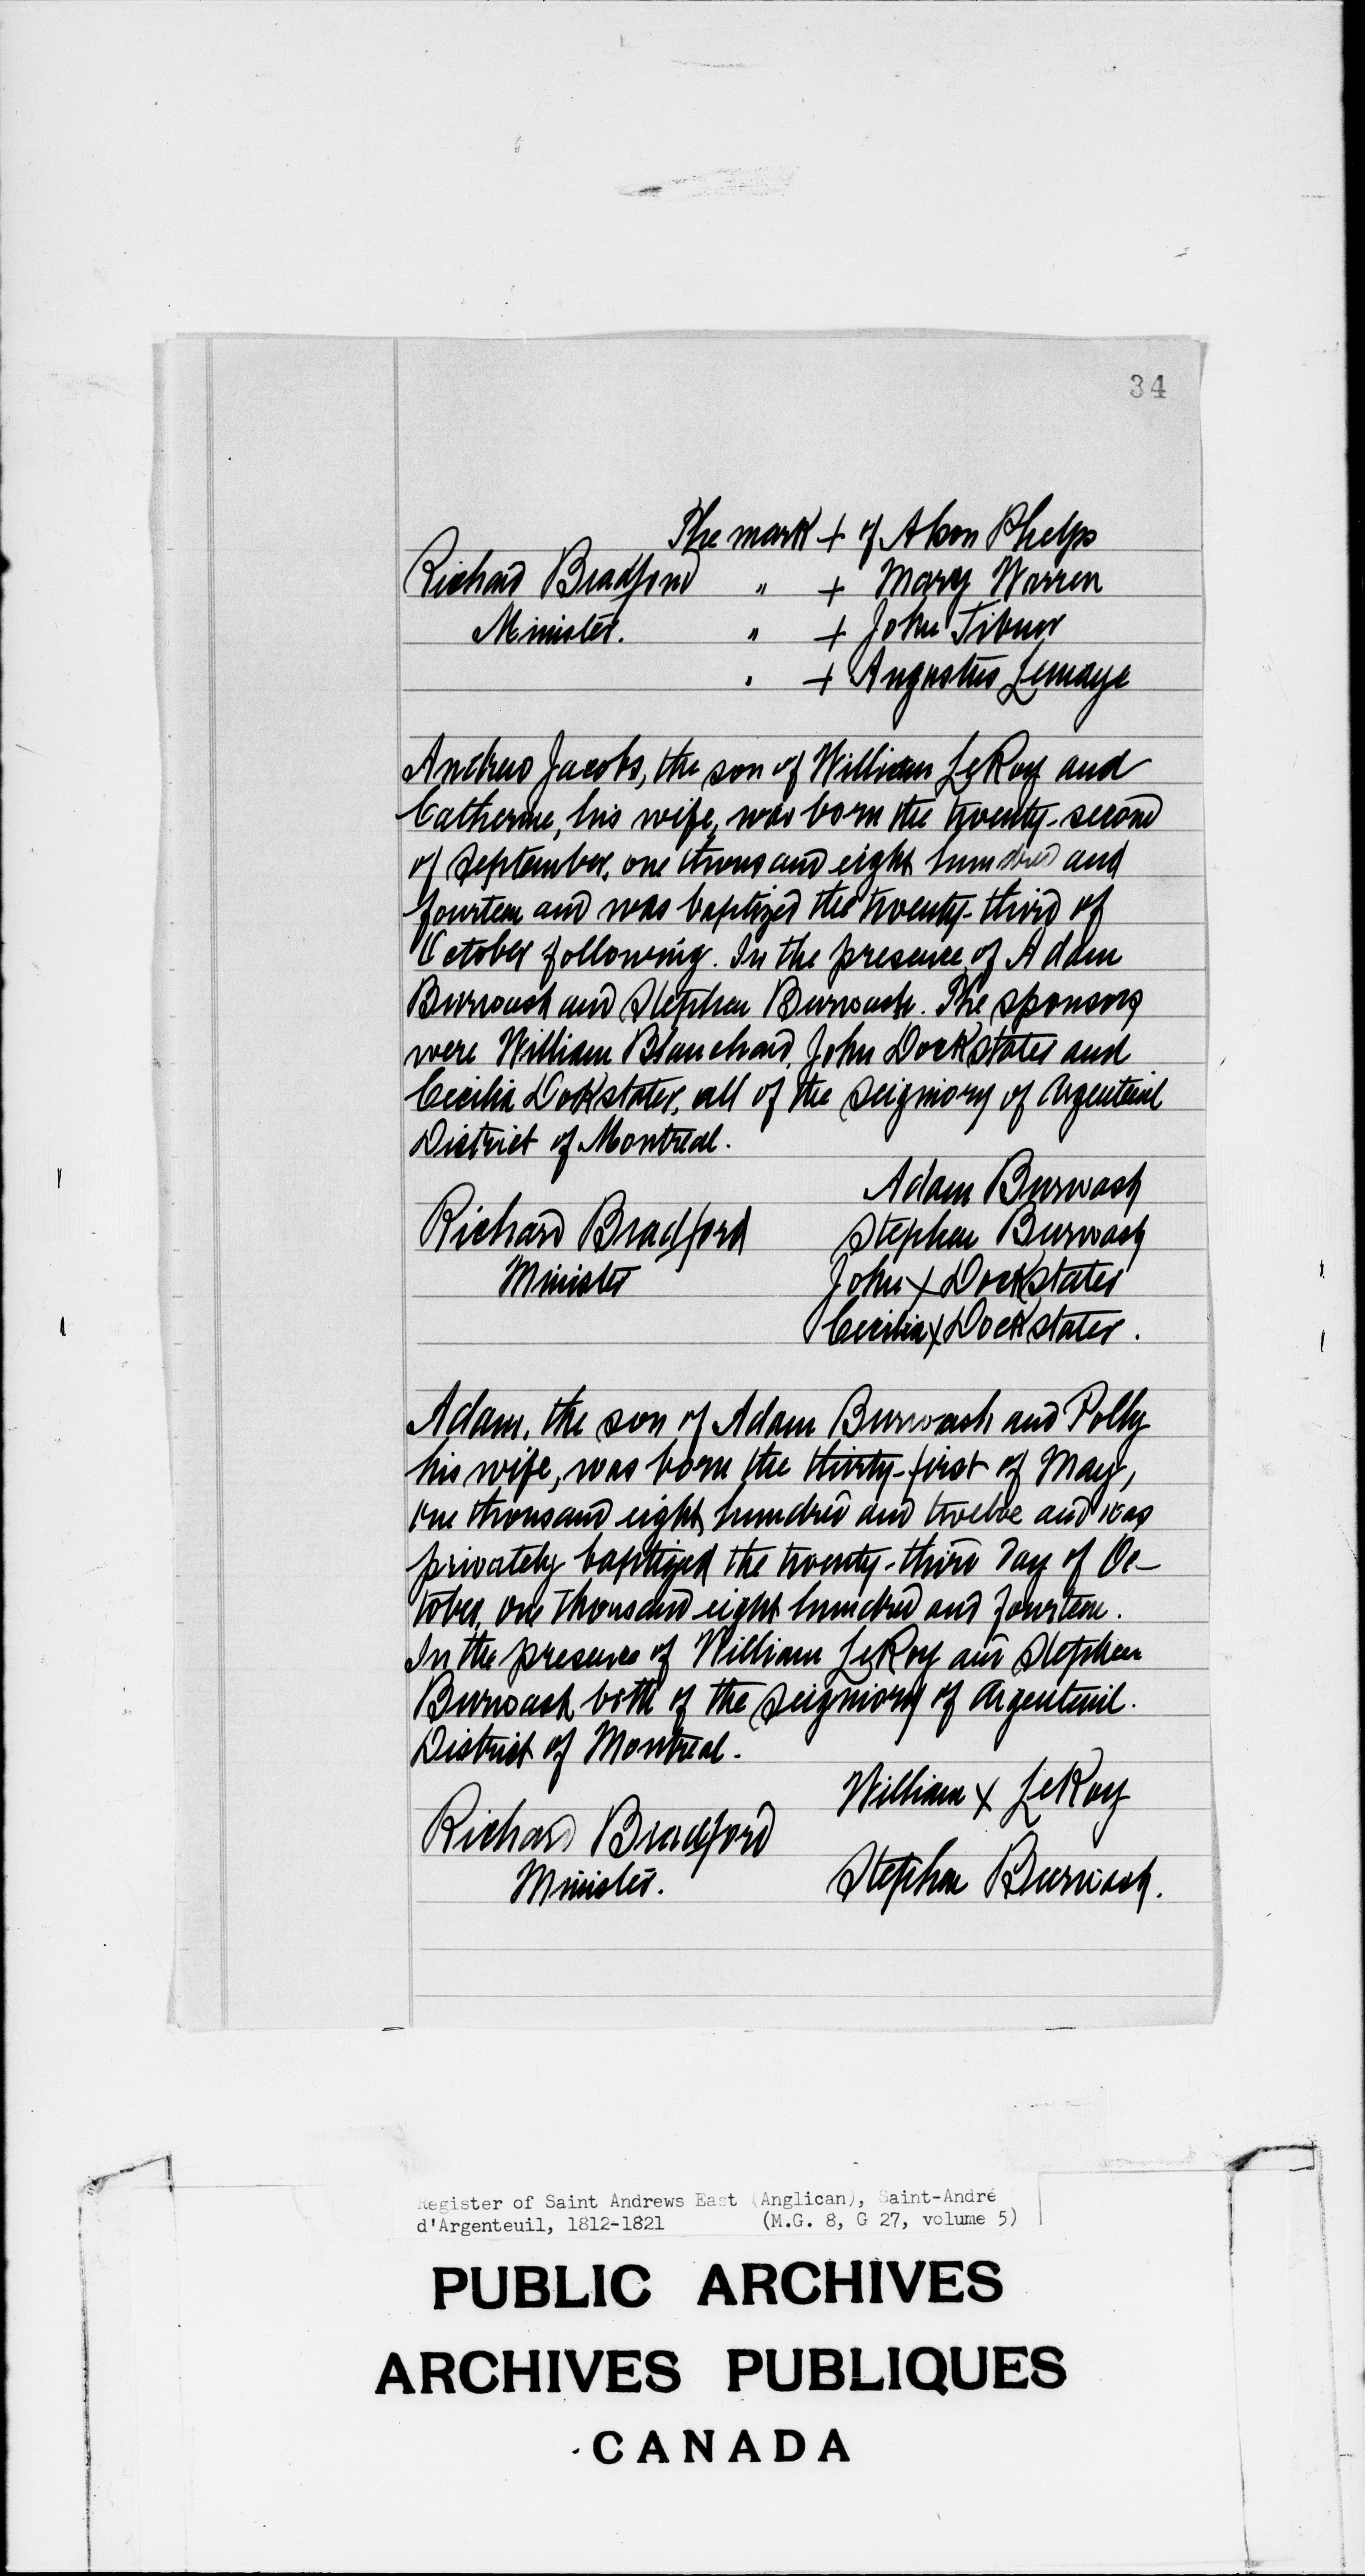 34
The mark + of Alson Phelps
Richard Bradford " + Mary Warren
Minister. " + John Tibner
" + Augustus Lemaye
Andrew Jacobs, the son of William LeRoy and
Catherine, his wife, was born the twenty-second
of September, one thousand eight hundred and
fourteen and was baptized the twenty-third of
October following. In the presence of Adam
Burwash and Stephen Burwash. The sponsors
were William Blanchard, John Dockstater and
Cecilia Dokstater, all of the Seigniory of Argenteuil
District of Montreal.
Adam Burwash
Richard Bradford Stephen Burwash
Minister John x Dockstater
Cecilia x Dockstater.
Adam, the son of Adam Burwash and Polly
his wife, was born the thirty-first of May,
one thousand eight hundred and twelve and was
privately baptized the twenty-third day of Oc-
tober, one thousand eight hundred and fourteen.
In the presence of William LeRoy and Stephen
Burwash both of the Seigniory of Argenteuil.
District of Montreal.
William x LeRoy
Richard Bradford
Minister. Stephen Burwash.
Register of Saint Andrews East (Anglican), Saint-André
d'Argenteuil, 1812-1821 (M.G. 8, G 27, volume 5)
PUBLIC ARCHIVES
ARCHIVES PUBLIQUES
CANADA